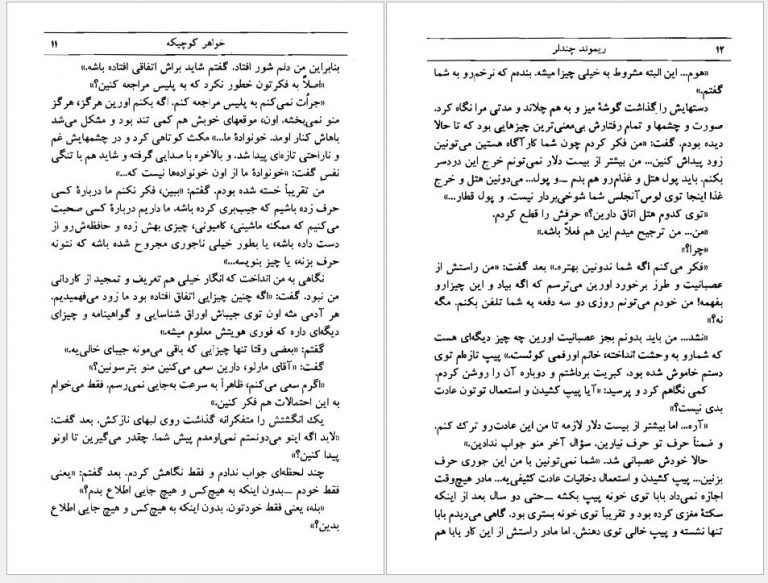 خواهر کوچیکه ۱۱
بنابراین من دلم شور افتاد. گفتم شاید براش اتفاقی افتاده باشه.»
«اصلاً به فکرتون خطور نکرد که به پلیس مراجعه کنین؟»
«جرأت نمی‌کنم به پلیس مراجعه کنم. اگه بکنم اورین هرگز، هرگز
منو نمی‌بخشه. اون، موقعهای خوبش هم کمی تند بود و مشکل می‌شد
باهاش کنار اومد. خونوادهٔ ما...» مکث کوتاهی کرد و در چشمهایش غم
و ناراحتی تازه‌ای پیدا شد. و بالاخره با صدایی گرفته و شاید هم با تنگی
نفس گفت: «خونوادهٔ ما از اون خونواده‌ها نیست که...»
من تقریباً خسته شده بودم. گفتم: «ببین، فکر نکنم ما دربارهٔ کسی
حرف زده باشیم که جیب‌بری کرده باشه. ما داریم دربارهٔ کسی صحبت
می‌کنیم که ممکنه ماشینی، کامیونی، چیزی بهش زده و حافظه‌ش‌رو از
دست داده باشه، یا بطور خیلی ناجوری مجروح شده باشه که نتونه
حرف بزنه، یا چیز بنویسه...»
نگاهی به من انداخت که انگار خیلی هم تعریف و تمجید از کاردانی
من نبود. گفت: «اگه چنین چیزایی اتفاق افتاده بود ما زود می‌فهمیدیم.
هر آدمی مثه اون توی جیباش اوراق شناسایی و گواهینامه و چیزای
دیگه‌ای داره که فوری هویتش معلوم میشه.»
گفتم: «بعضی وقتا تنها چیزایی که باقی می‌مونه جیبای خالی‌یه.»
گفت: «آقای مارلو، دارین سعی می‌کنین منو بترسونین؟»
«اگرم سعی می‌کنم، ظاهراً به سرعت به‌جایی نمی‌رسم. فقط می‌خوام
به این احتمالات هم فکر کنین.»
یک انگشتش را متفکرانه گذاشت روی لبهای نازکش. بعد گفت:
«لابد اگه اینو می‌دونستم نمی‌اومدم پیش شما. چقدر می‌گیرین تا اونو
پیدا کنین؟»
چند لحظه‌ای جواب ندادم و فقط نگاهش کردم. بعد گفتم: «یعنی
فقط خودم ــ‌بدون اینکه به هیچ‌کس و هیچ جایی اطلاع بدم؟»
«بله، یعنی فقط خودتون. بدون اینکه به هیچ‌کس و هیچ جایی اطلاع
بدین؟»
۱۲ ریموند چندلر
«هوم... این البته مشروط به خیلی چیزا میشه. بنده‌م که نرخم‌رو به شما
گفتم.»
دستهایش را گذاشت گوشهٔ میز و به هم چلاند و مدتی مرا نگاه کرد.
صورت و چشمها و تمام رفتارش بی‌معنی‌ترین چیزهایی بود که تا حالا
دیده بودم. گفت: «من فکر کردم چون شما کارآگاه هستین می‌تونین
زود پیداش کنین... من بیشتر از بیست دلار نمی‌تونم خرج این دردسر
بکنم. باید پول هتل و غذام‌رو هم بدم ــ‌و پول... می‌دونین هتل و خرج
غذا اینجا توی لوس‌آنجلس شما شوخی‌بردار نیست. و پول قطار...»
«توی کدوم هتل اتاق دارین؟» حرفش را قطع کردم.
«من... من ترجیح میدم این هم فعلاً باشه.»
«چرا؟»
«فکر می‌کنم اگه شما ندونین بهتره.» بعد گفت: «من راستش از
عصبانیت و طرز برخورد اورین می‌ترسم که اگه بیاد و این چیزارو
بفهمه! من خودم می‌تونم روزی دو سه دفعه به شما تلفن بکنم. مگه
نه؟»
«نشد... من باید بدونم بجز عصبانیت اورین چه چیز دیگه‌ای هست
که شمارو به وحشت انداخته، خانم اورفمی کوئست.» پیپ تازه‌ام توی
دستم خاموش شده بود. کبریت برداشتم و دوباره آن را روشن کردم.
کمی نگاهم کرد و پرسید: «آیا پیپ کشیدن و استعمال توتون عادت
بدی نیست؟»
«آره... اما بیشتر از بیست دلار لازمه تا من این عادت‌رو ترک کنم.
و ضمناً حرف تو حرف نیارین. سؤال آخر منو جواب ندادین.»
حالا خودش عصبانی شد. «شما نمی‌تونین با من این جوری حرف
بزنین... پیپ کشیدن و استعمال دخانیات عادت کثیفی‌یه... مادر هیچ‌وقت
اجازه نمی‌داد بابا توی خونه پیپ بکشه ــ‌حتی دو سال بعد از اینکه
سکتهٔ مغزی کرده بود و تقریباً توی خونه بستری بود. گاهی می‌دیدم بابا
تنها نشسته و پیپ خالی توی دهنش. اما مادر راستش از این کار بابا هم